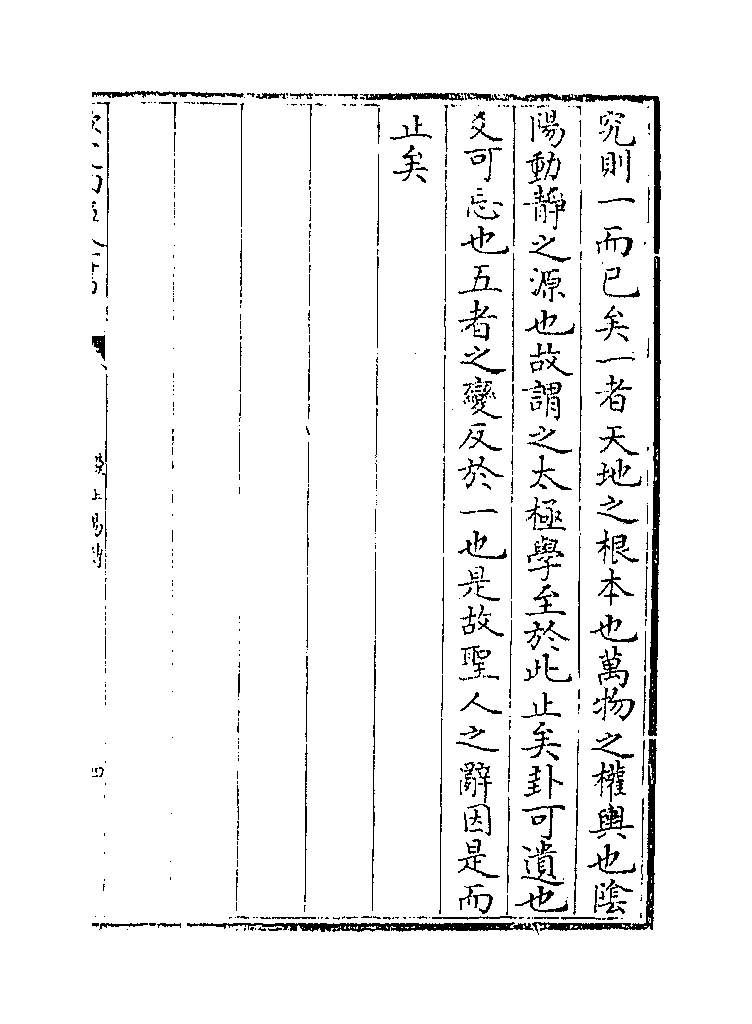 究則一而已矣一者天地之根本也萬物之權輿也陰
陽動靜之源也故謂之太極學至於此止矣卦可遺也
爻可忘也五者之變反於一也是故聖人之辭因是而
止矣
漢上易傳
四